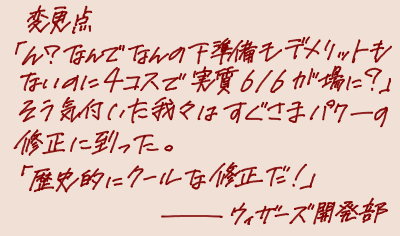 変更点
「ん?なんでなんの下準備もデメリットも
ないのに4コスで実質6/6が場に?」
そう気付いた我々はすぐさまパワーの
修正に到った。
「歴史的にクールな修正だ!」
――ウィザーズ開発部